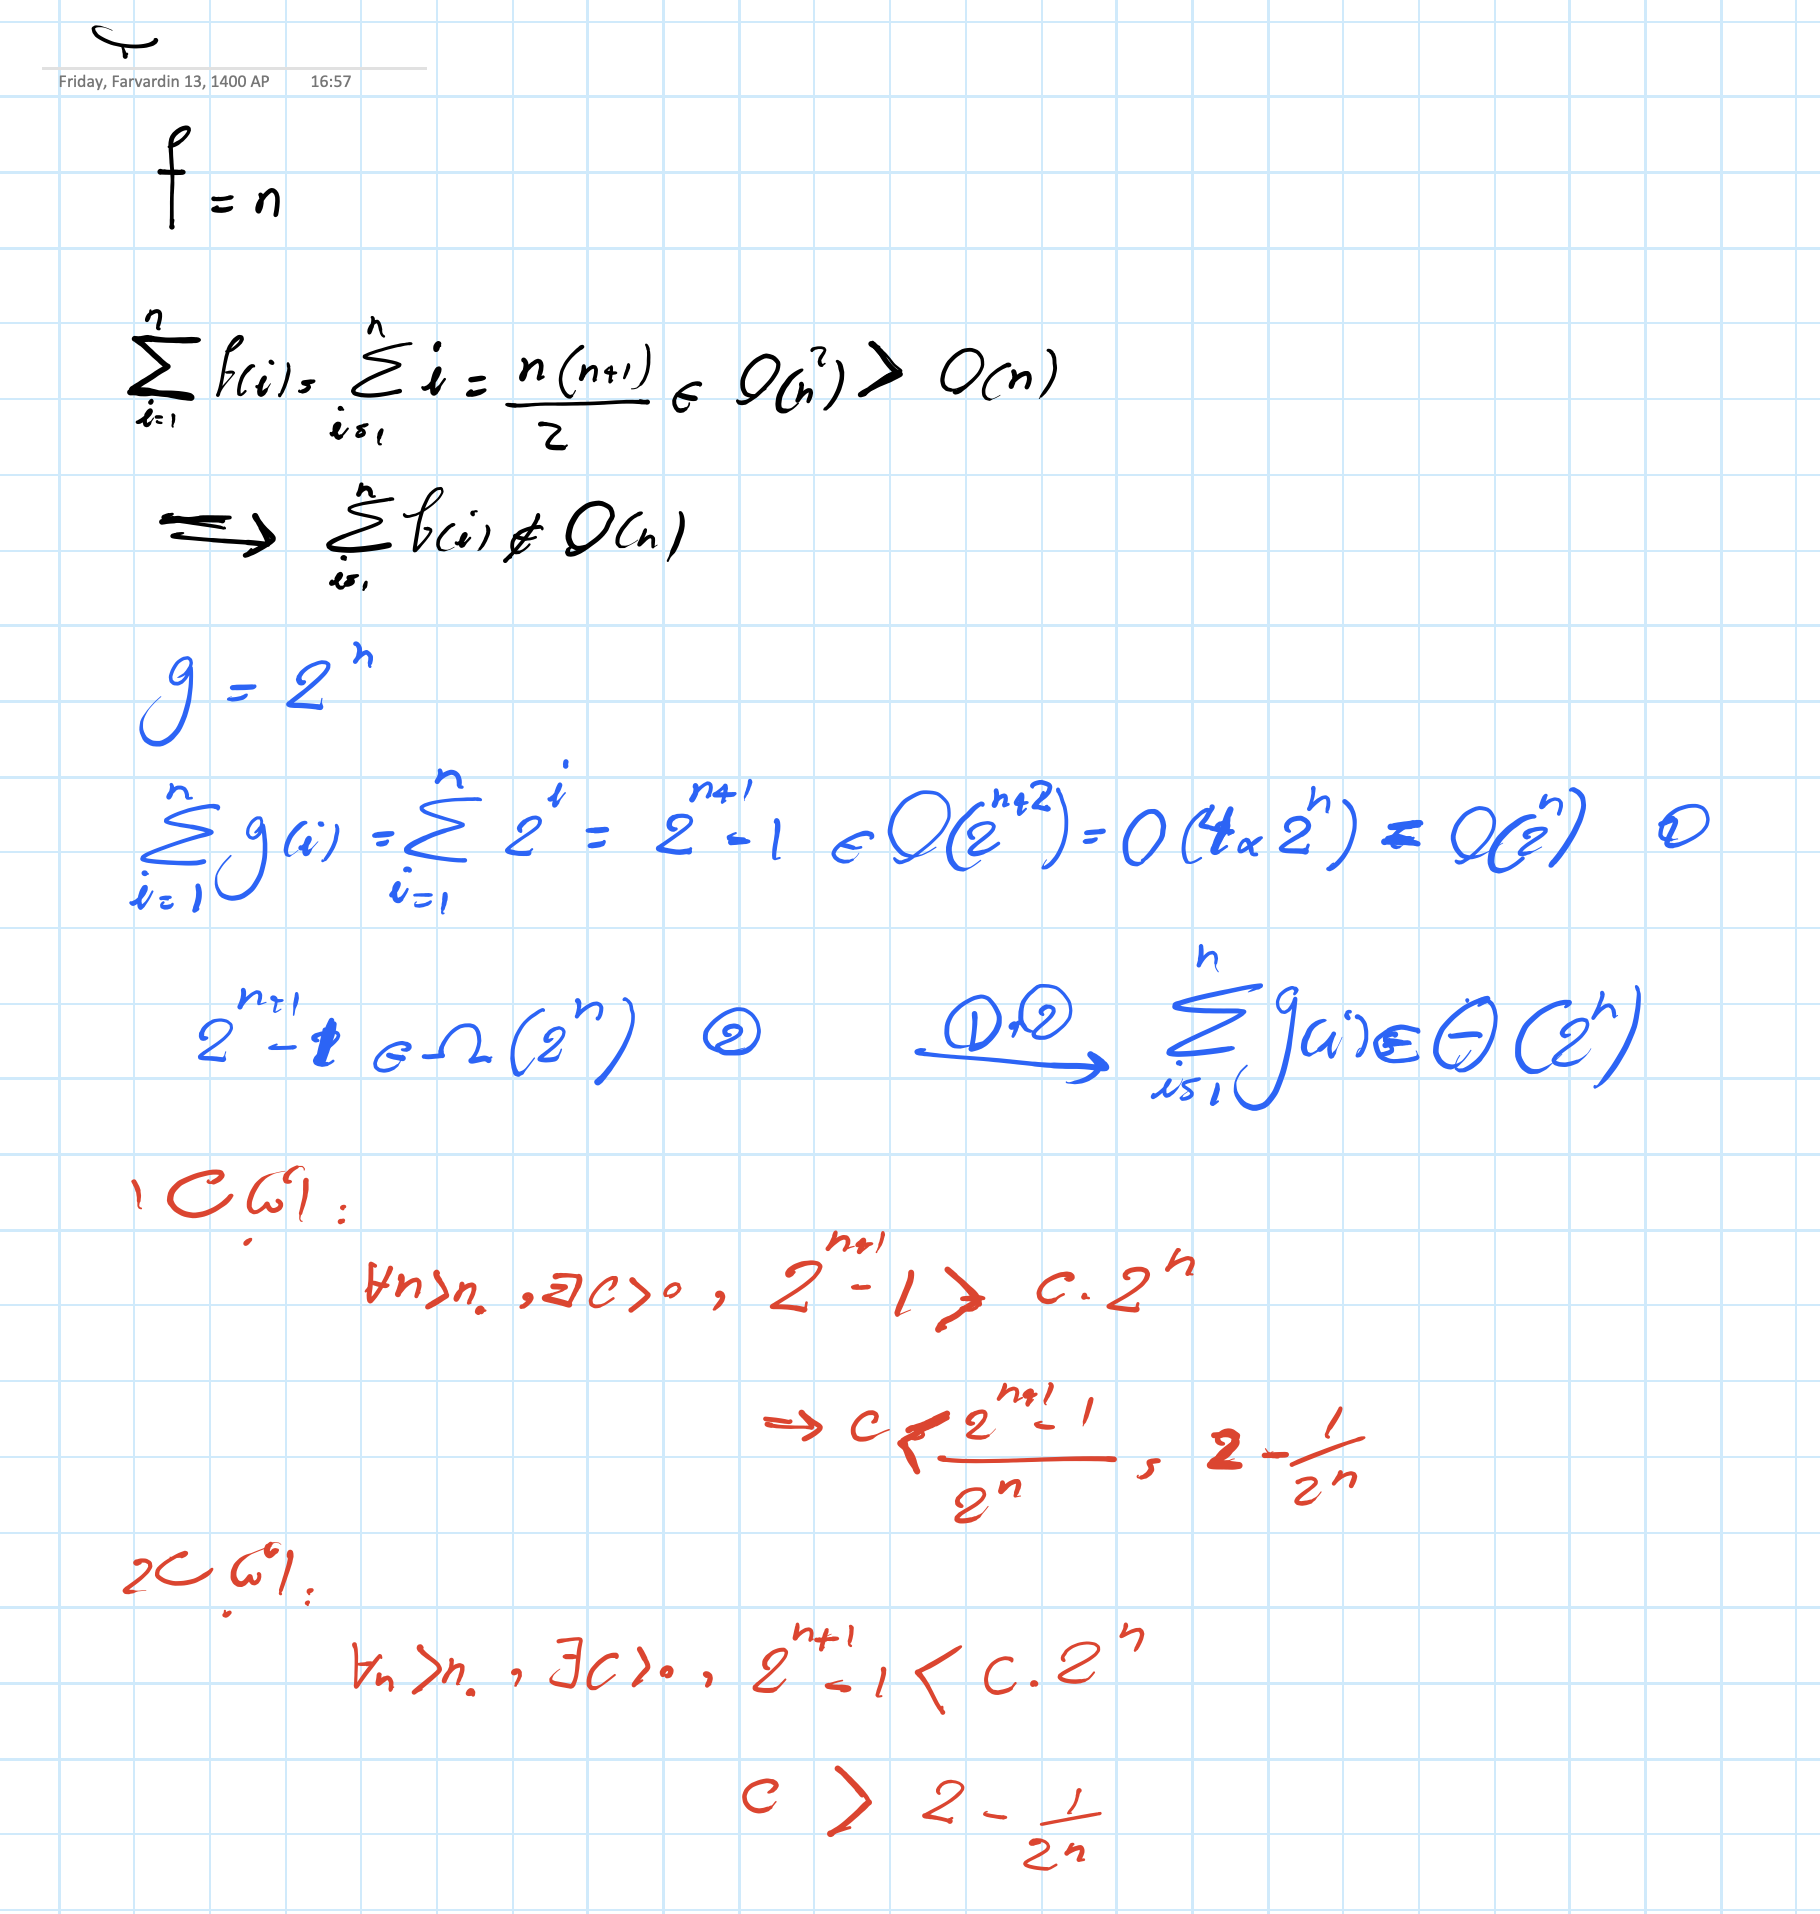 ب
Friday, Farvardin 13, 1400 AP 16:57
f = n
∑_{i=1}^{n} f(i) = ∑_{i=1}^{n} i = n(n+1)/2 ∈ O(n²) > O(n)
⟹ ∑_{i=1}^{n} f(i) ∉ O(n)
g = 2^n
∑_{i=1}^{n} g(i) = ∑_{i=1}^{n} 2^i = 2^{n+1} - 1 ∈ O(2^{n+2}) = O(4 × 2^n) = O(2^n) ①
2^{n+1} - 1 ∈ Ω(2^n) ② ①,② → ∑_{i=1}^{n} g(i) ∈ Θ(2^n)
اثبات 1:
∀n > n₀, ∃c > 0, 2^{n+1} - 1 > c.2^n
⇒ c < (2^{n+1} - 1)/2^n = 2 - 1/2^n
اثبات 2:
∀n > n₀, ∃c > 0, 2^{n+1} - 1 < c.2^n
c > 2 - 1/2^n